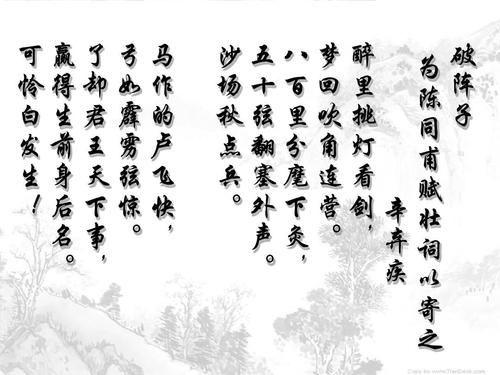 破阵子
为陈同甫赋壮词以寄之
辛弃疾
醉里挑灯看剑,
梦回吹角连营。
八百里分麾下灸,
五十弦翻塞外声。
沙场秋点兵。
马作的卢飞快,
弓如霹雳弦惊。
了却君王天下事,
赢得生前身后名。
可怜白发生!